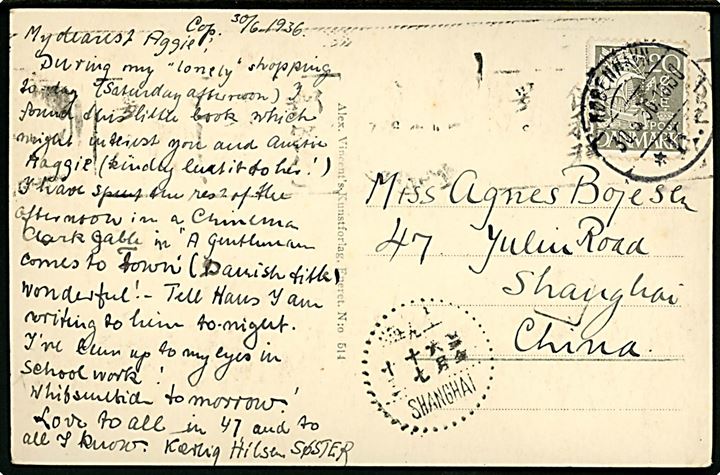 Cop. 30/6.1936.
My dearest Aggie!
During my "lonely" shopping
to-day (Saturday afternoon) I
found this little book which
might interest you and Auntie
Maggie (kindly lend it to her!)
I have spent the rest of the
afternoon in a Cinnema
Clark Gable in "A Gentleman
comes to Town" (Danish title)
wonderful! - Tell Hans I am
writing to him to-night.
I've been up to my eyes in
school work!
Whitsuntide to morrow!
Love to all in 47 and to
all I know. Kærlig Hilsen SØSTER
Alex. Vincent's Kunstforlag, Eneret. No 514
KØBENHAVN
20
POST
DANMARK
Miss Agnes Bojesen
47 Yulin Road
Shanghai
China.
上海
十七
六月
SHANGHAI